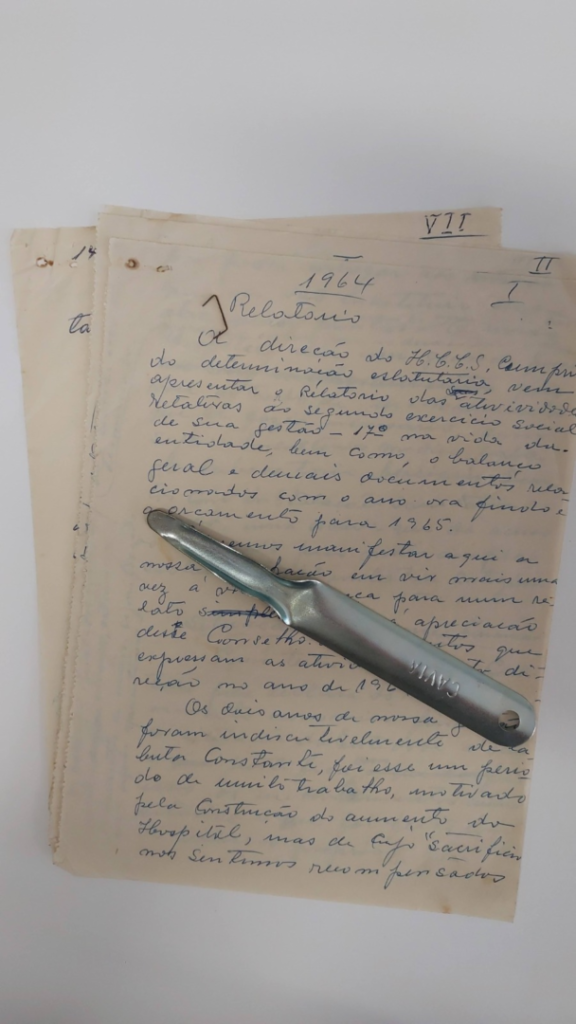 VII
II
14
I
1964
ta
Relatorio
A direção do H.C.C.S. Cumprin
do determinação estatutaria, vem
apresentar o Relatorio das atividades
relativas ao segundo exercício social
de sua gestão - 17º na vida da
entidade, bem como, o balanço
geral e demais documentos rela-
cionados com o ano ora findo e
o orçamento para 1965.
manifestar aqui a
nossa em vir mais uma
vez á para num re-
lato apreciação
deste Conselho. que
expressam as di-
reção no ano de 196
Os dois anos de nossa
foram indiscutivelmente de la-
buta Constante, foi esse um perio-
do de muito trabalho, motivado
pela Construção do aumento do
Hospital, mas de cujo "sacrificio
nos sentimos recompensados
CAVIA